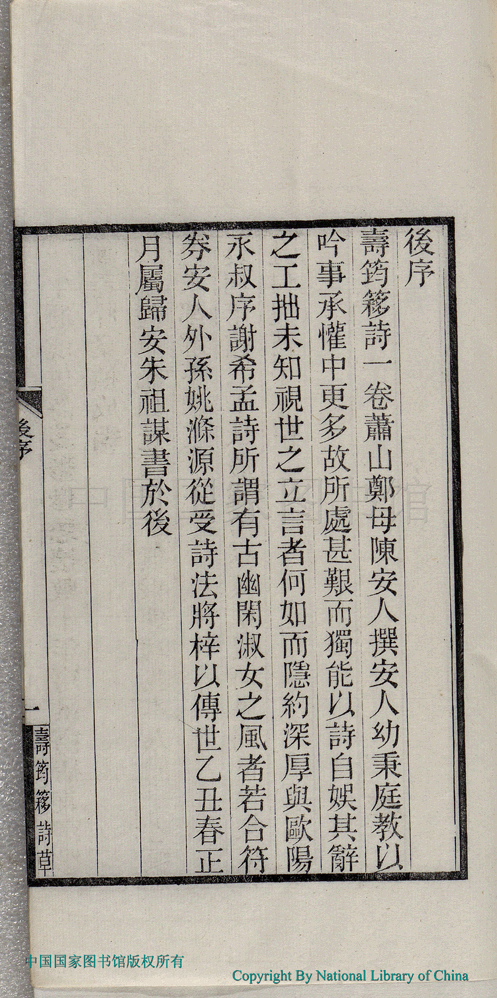 後序
壽筠簃詩一卷蕭山鄭母陳安人撰安人幼秉庭教以
吟事承懽中更多故所處甚艱而獨能以詩自娛其辭
之工拙未知視世之立言者何如而隱約深厚與歐陽
永叔序謝希孟詩所謂有古幽閑淑女之風者若合符
券安人外孫姚滌源從受詩法將梓以傳世乙丑春正
月屬歸安朱祖謀書於後
後序
一
壽筠簃詩草
中国国家图书馆版权所有
Copyright By National Library of China